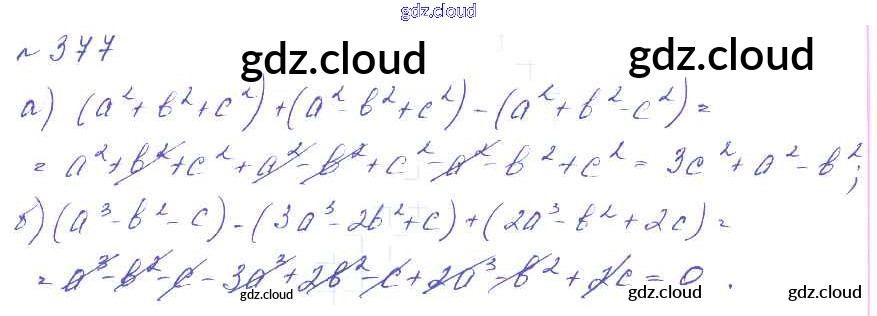 gdz.cloud
№ 377
gdz.cloud gdz.cloud
а) (a² + b² + c²) + (a² - b² + c²) - (a² + b² - c²) =
= a² + b² + c² + a² - b² + c² - a² - b² + c² = 3c² + a² - b²;
б) (a³ - b² - c) - (3a³ - 2b² + c) + (2a³ - b² + 2c) =
= a³ - b² - c - 3a³ + 2b² - c + 2a³ - b² + 2c = 0.
gdz.cloud gdz.cloud gdz.cloud